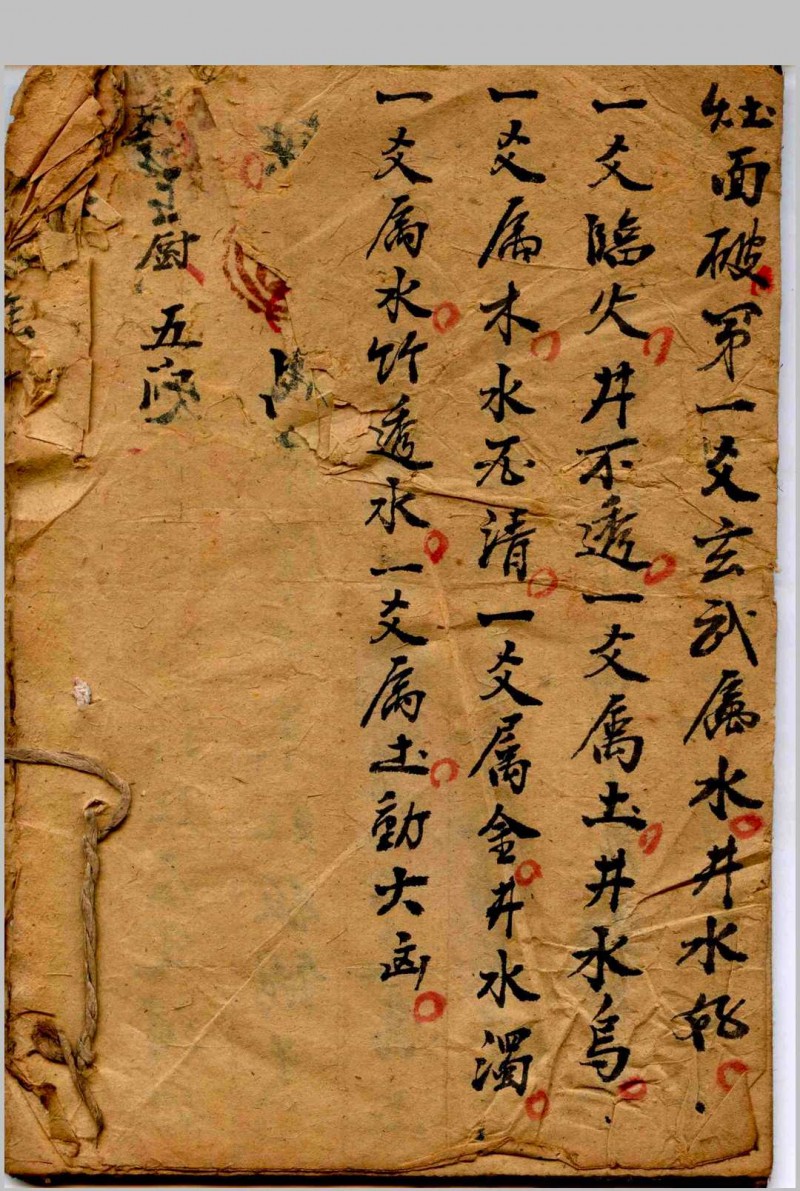 灶面破第一爻玄武属水井水
一爻臨火井不透一爻属土井水烏
一爻属木水不清一爻属金井水濁
一爻属水竹透水一爻属土動大凶
厨五